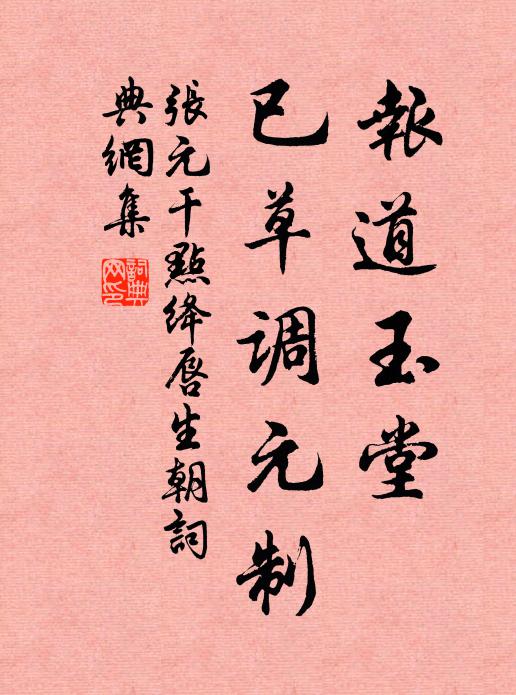 報道玉堂
已草調元制
張元干點絳唇生朝詞
典網集
詞典
网印